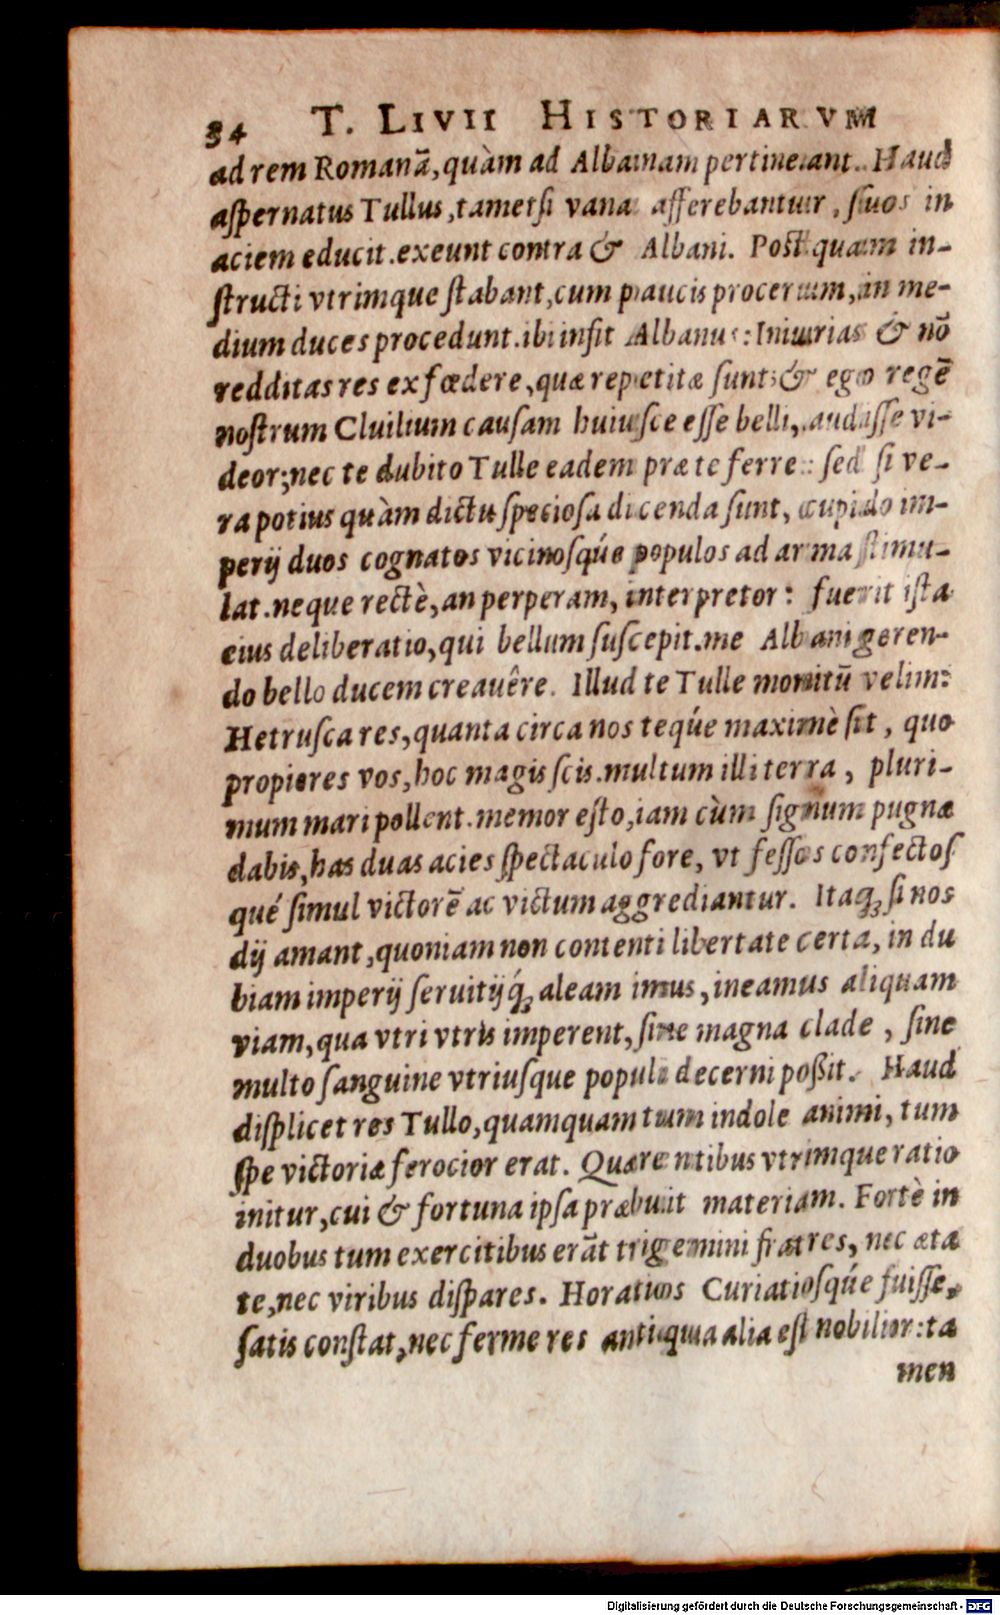 34 T. LIVII HISTORIARVM
ad rem Romanā, quàm ad Albanam pertineant. Haud
aſpernatus Tullus, tametſi vana afferebantur, ſuos in
aciem educit. exeunt contra & Albani. Poſt quam in-
ſtructi vtrimque ſtabant, cum paucis procerum, in me-
dium duces procedunt. ibi inſit Albanus: Iniurias & nō
redditas res ex fœdere, quæ repetitæ ſunt, & ego regē
noſtrum Cluilium cauſam huiuſce eſſe belli, audiſſe vi-
deor; nec te dubito Tulle eadem præ te ferre: ſed ſi ve-
ra potius quàm dictu ſpecioſa dicenda ſunt, cupido im-
perij duos cognatos vicinoſqúe populos ad arma ſtimu-
lat. neque rectè, an perperam, interpretor: fuerit iſta
eius deliberatio, qui bellum ſuſcepit. me Albani geren-
do bello ducem creauêre. Illud te Tulle monitū velim:
Hetruſca res, quanta circa nos teqúe maximè ſit, quo
propiores vos, hoc magis ſcis. multum illi terra, pluri-
mum mari pollent. memor eſto, iam cùm ſignum pugnæ
dabis, has duas acies ſpectaculo fore, vt feſſos confectoſ
qué ſimul victorē ac victum aggrediantur. Itaq; ſi nos
dij amant, quoniam non contenti libertate certa, in du
biam imperij ſeruitijq́; aleam imus, ineamus aliquam
viam, qua vtri vtris imperent, ſine magna clade, ſine
multo ſanguine vtriuſque populi decerni poßit. Haud
diſplicet res Tullo, quamquam tum indole animi, tum
ſpe victoriæ ferocior erat. Quærentibus vtrimque ratio
initur, cui & fortuna ipſa præbuit materiam. Fortè in
duobus tum exercitibus erāt trigemini fratres, nec æta
te, nec viribus diſpares. Horatios Curiatioſqúe fuiſſe,
ſatis conſtat, nec ferme res antiqua alia eſt nobilior: ta
men
Digitalisierung gefördert durch die Deutsche Forschungsgemeinschaft - DFG